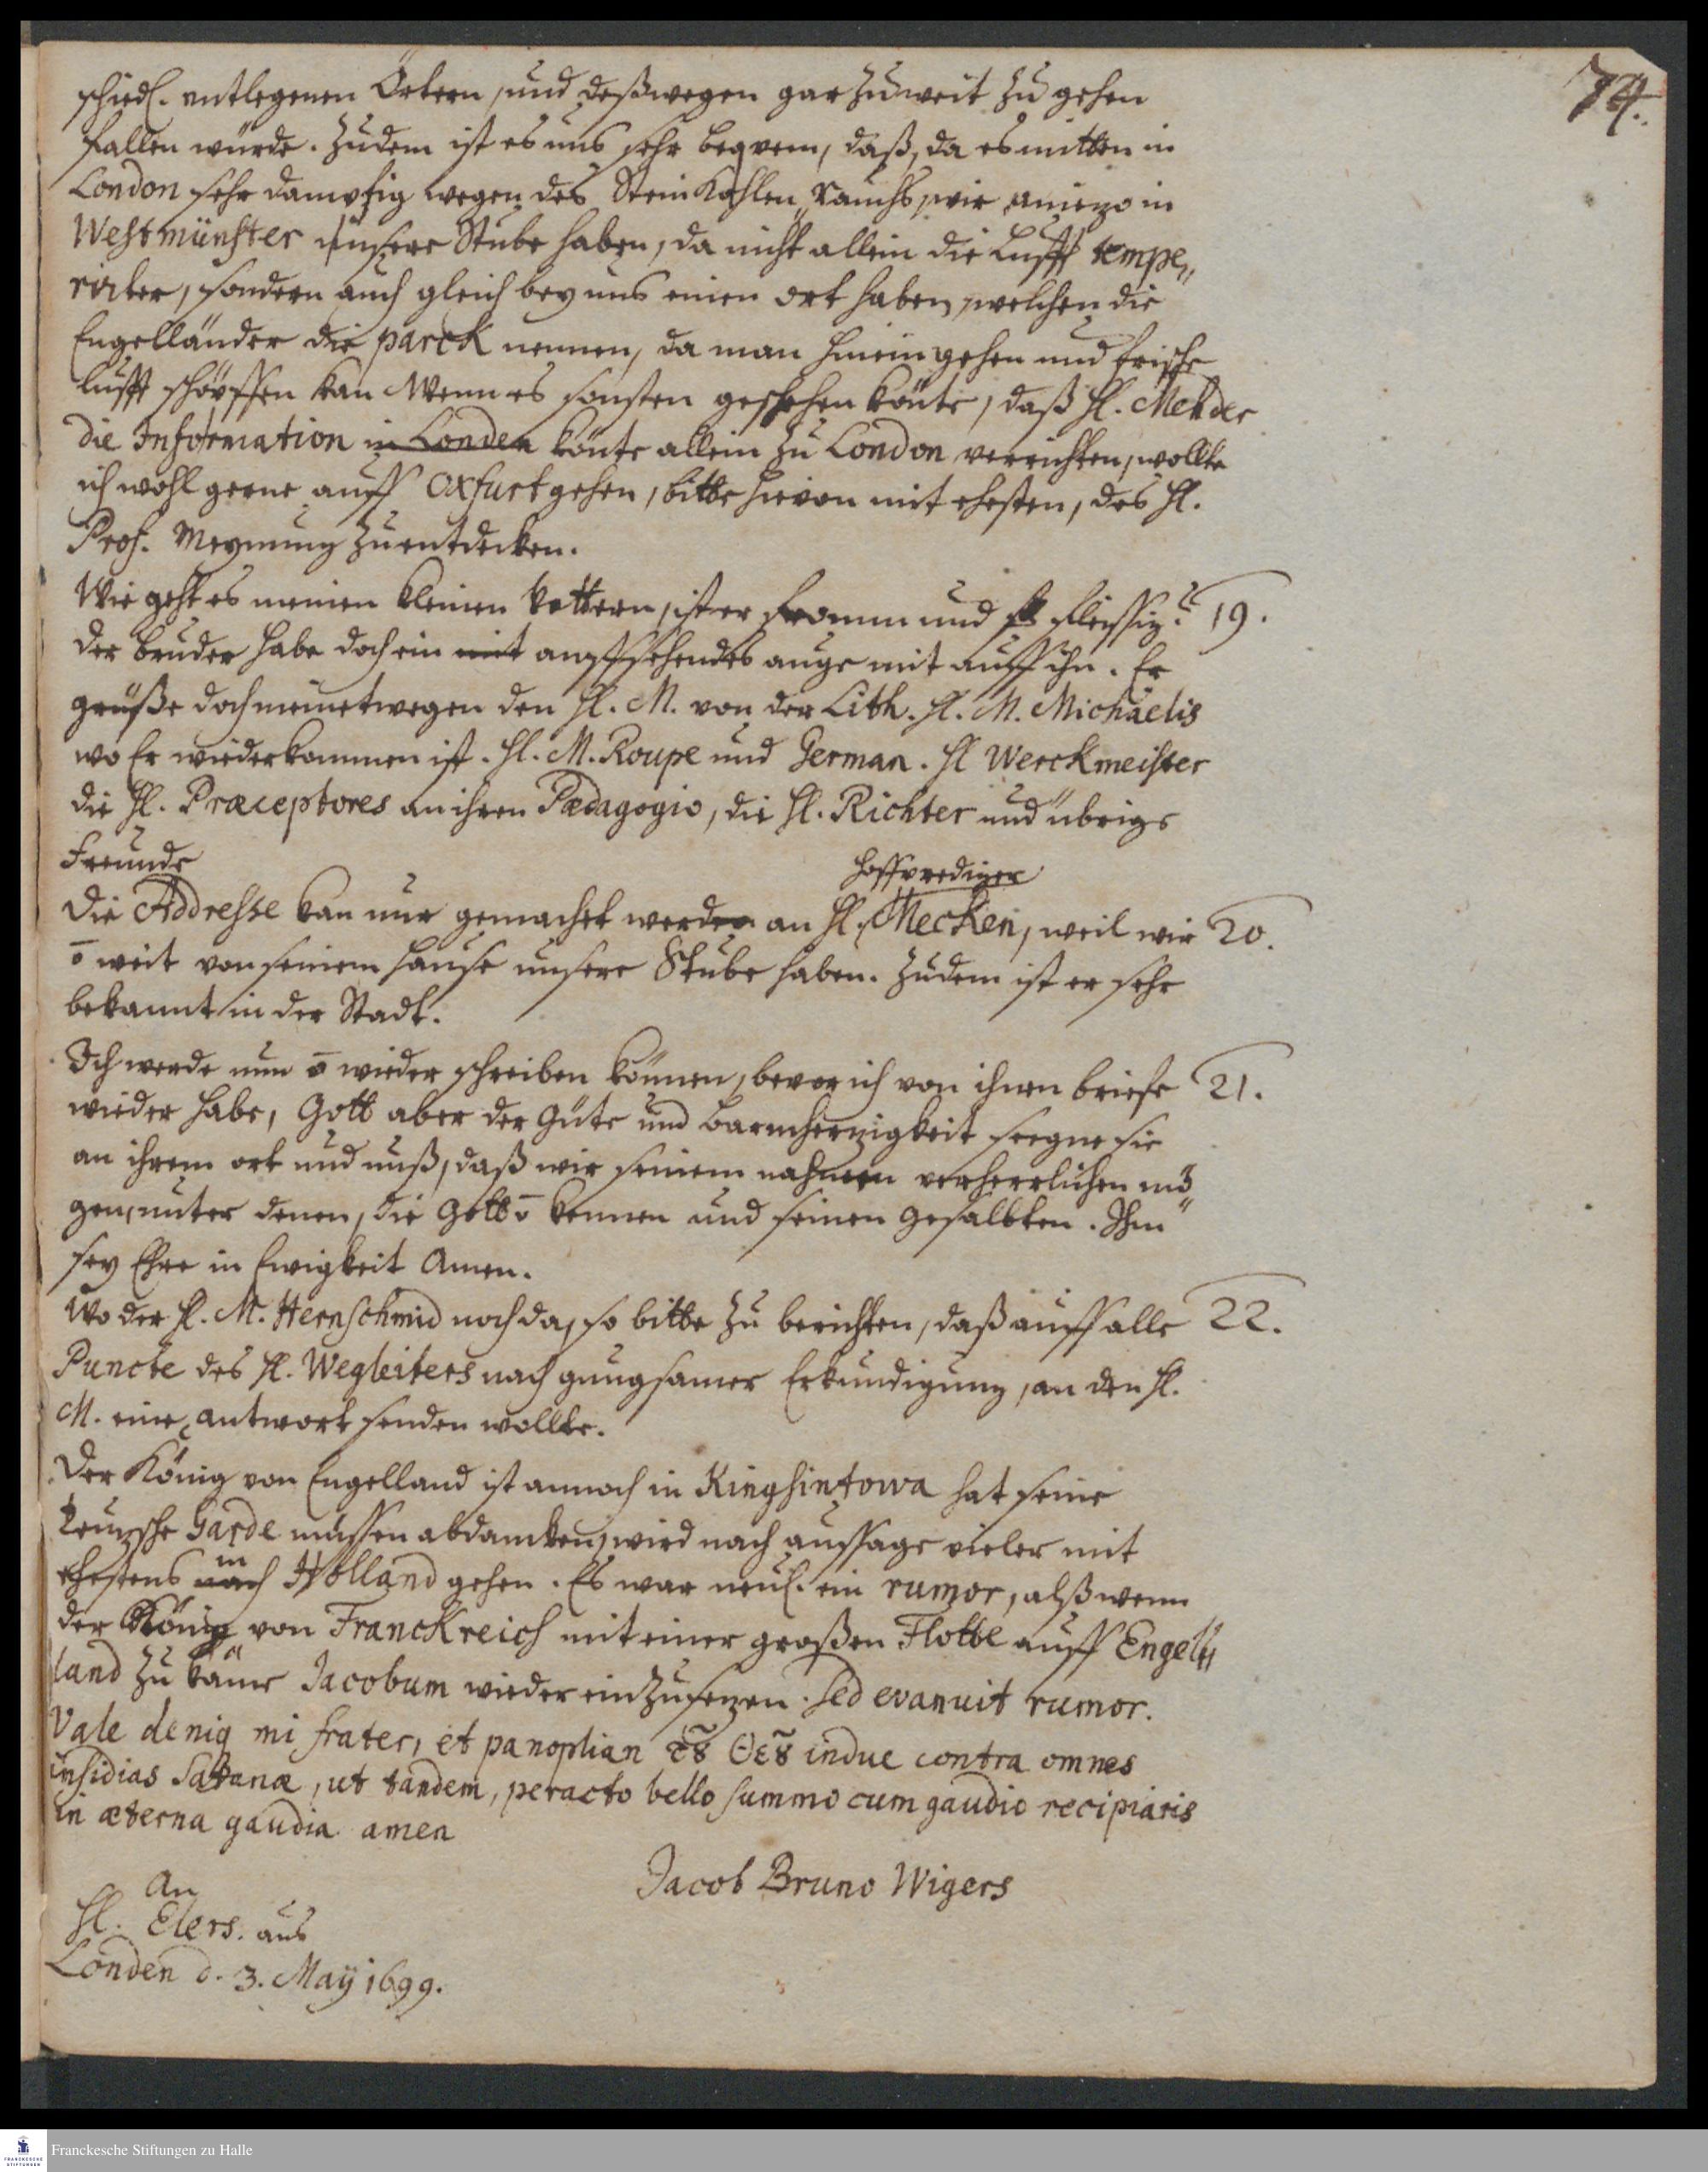 74.
schiedl. entlegenen Örtern, und deßwegen gar zu weit zu gehen
fallen würde. Zudem ist es uns sehr beqvem, daß, da es mitten in
London sehr dampfig wegen des SteinKohlen rauchs, wir anietzo in
Westmünster unsere Stube haben, da nicht allein die Lufft tempe„
rirter, sondern auch gleich bey uns einen ort haben, welchen die
Engelländer die parck nennen, da man hinein gehen und frische
lufft schöpffen kan. Wenn es sonsten geschehen könte, daß H. Mehder
die Information in Londen könte allein zu London verrichten, wollte
ich wohl gerne auff Oxfurt gehen, bitte hievon mit ehesten, des H.
Prof. Meynung zu entdecken.
Wie geht es meinen kleinen Vettern, ist er fromm und fleissig? 19.
der bruder habe doch ein mit auffsehendes auge mit auff ihn. Er
grüße doch meinetwegen den H. M. von der Lith. H. M. Michaelis
wo Er wiederkommen ist. H. M. Roupe und German. H Werckmeister
die H. Præceptores an ihren Pædagogio, die H. Richter und übrige
Freunde
Hoffprediger
Die Addresse kan nur gemachet werden an H. Mecken, weil wir 20.
o weit von seinem Hause unsere Stube haben. Zudem ist er sehr
bekannt in der Stadt.
Ich werde nun o wieder schreiben können, bevor ich von ihnen briefe 21.
wieder habe, Gott aber der Güte und Barmhertzigkeit seegne sie
an ihrem ort und unß, daß wir seinem nahmen verherrlichen mö„
gen, unter denen, die Gott o kennen und seinen Gesalbten. Ihm
sey Ehre in Ewigkeit Amen.
Wo der H. M. Hernschmid noch da, so bitte zu berichten, daß auff alle 22.
Puncte des H. Wegleiters nach gnugsamer Erkundigung, an den H.
M. eine antwort senden wollte.
Der König von Engelland ist annoch in Kinghintowa hat seine
teutzsche Garde müssen abdancken, wird nach aussage vieler mit
in
ehestens nach Holland gehen. Es war neul. ein rumor, alß wenn
der König von Franckreich mit einer großen Flotte auff Engel„
land zu käme Jacobum wieder einzusetzen. Sed evanuit rumor.
Vale deniq mi frater, et panoplian τ͂ȣ Θε͂ȣ indue contra omnes
insidias Satanæ, ut tandem, peracto bello summo cum gaudio recipiaris
in æterna gaudia amen
Jacob Bruno Wigers
An
H. Elers. aus
Londen d. 3. Maÿ 1699.
Franckesche Stiftungen zu Halle
FRANCKESCHE
STIFTUNGEN